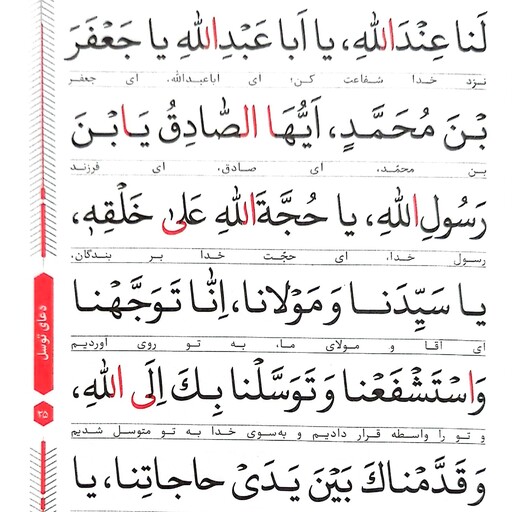 لَنا عِنْدَاللهِ، یا اَبا عَبْدِاللهِ یا جَعْفَرَ
نزد خدا شفاعت کن؛ ای اباعبدالله، ای جعفر
بْنَ مُحَمَّدٍ، اَیُّهَا الصّادِقُ یَابْنَ
بن محمّد، ای صادق، ای فرزند
رَسُولِ اللهِ، یا حُجَّةَ اللهِ عَلیٰ خَلْقِهٖ،
رسول خدا، ای حجّت خدا بر بندگان،
یا سَیِّدَنا وَ مَوْلانا، اِنّا تَوَجَّهْنا
ای آقا و مولای ما، به تو روی آوردیم
وَاسْتَشْفَعْنا وَ تَوَسَّلْنا بِكَ اِلَی اللهِ،
و تو را واسطه قرار دادیم و به‌سوی خدا به تو متوسل شدیم
وَ قَدَّمْناكَ بَیْنَ یَدَیْ حاجاتِنا، یا
دعای توسل
۳۵